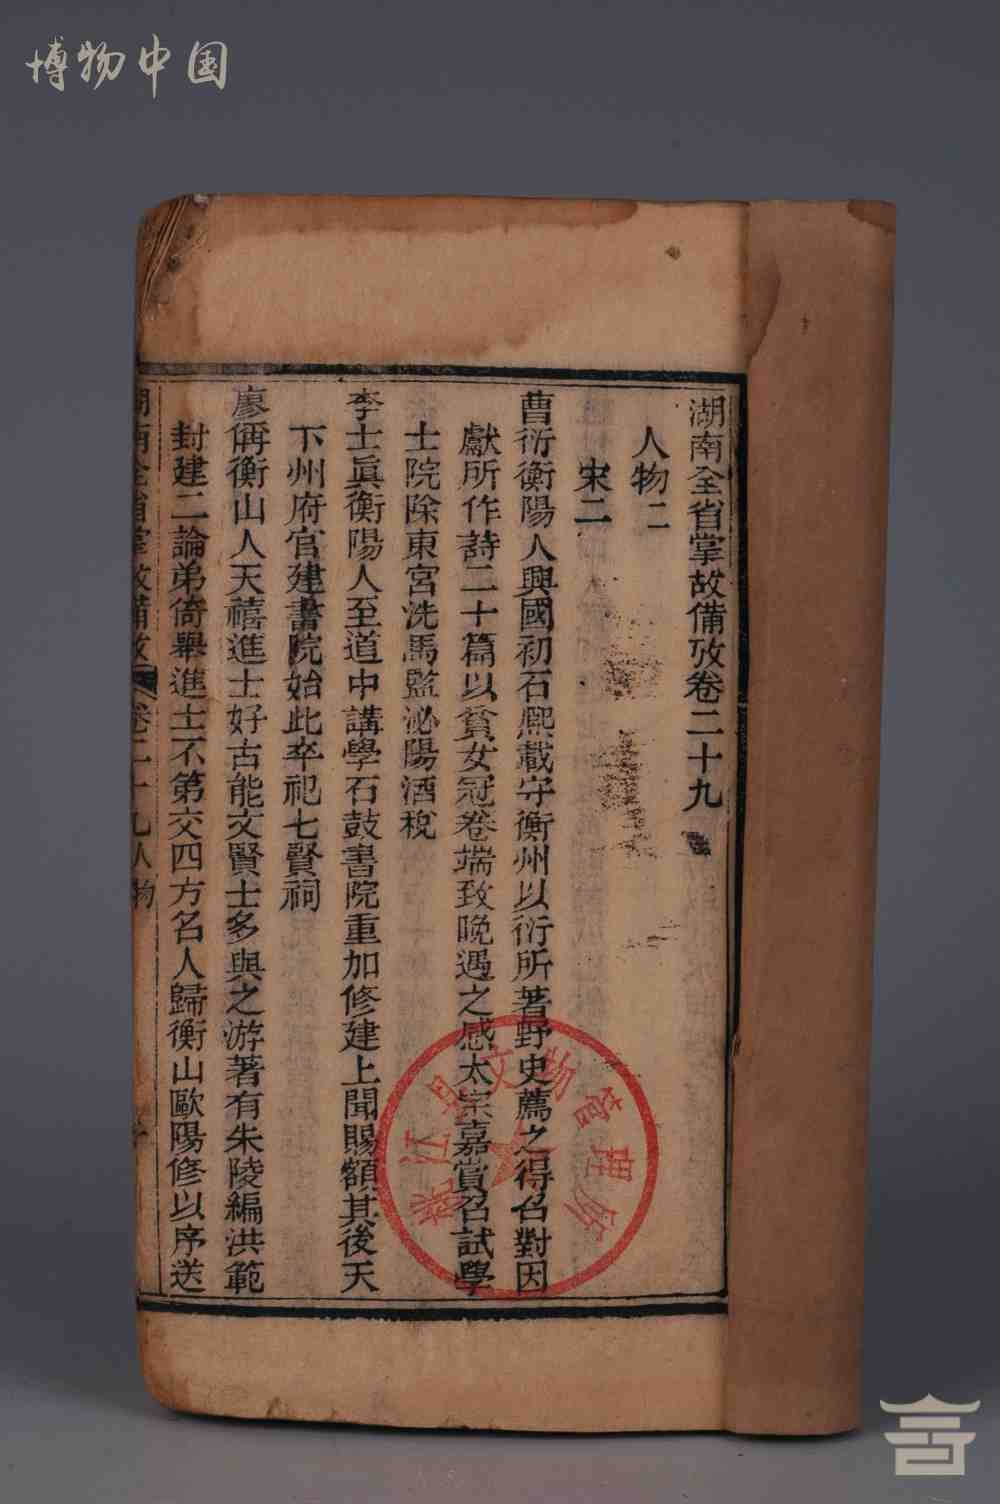 博物中国
湖南全省掌故備攷卷二十九
人物二
宋二
曹衍衡陽人興國初石熙載守衡州以衍所著野史薦之得召對因
獻所作詩二十篇以貧女冠卷端致晚遇之感太宗嘉賞召試學
士院除東宮洗馬監泌陽酒稅
李士眞衡陽人至道中講學石鼓書院重加修建上聞賜額其後天
下州府官建書院始此卒祀七賢祠
廖偁衡山人天禧進士好古能文賢士多與之游著有朱陵編洪範
封建二論弟倚舉進士不第交四方名人歸衡山歐陽修以序送
湖南全省掌故備攷 卷二十九人物
江县文物管理所